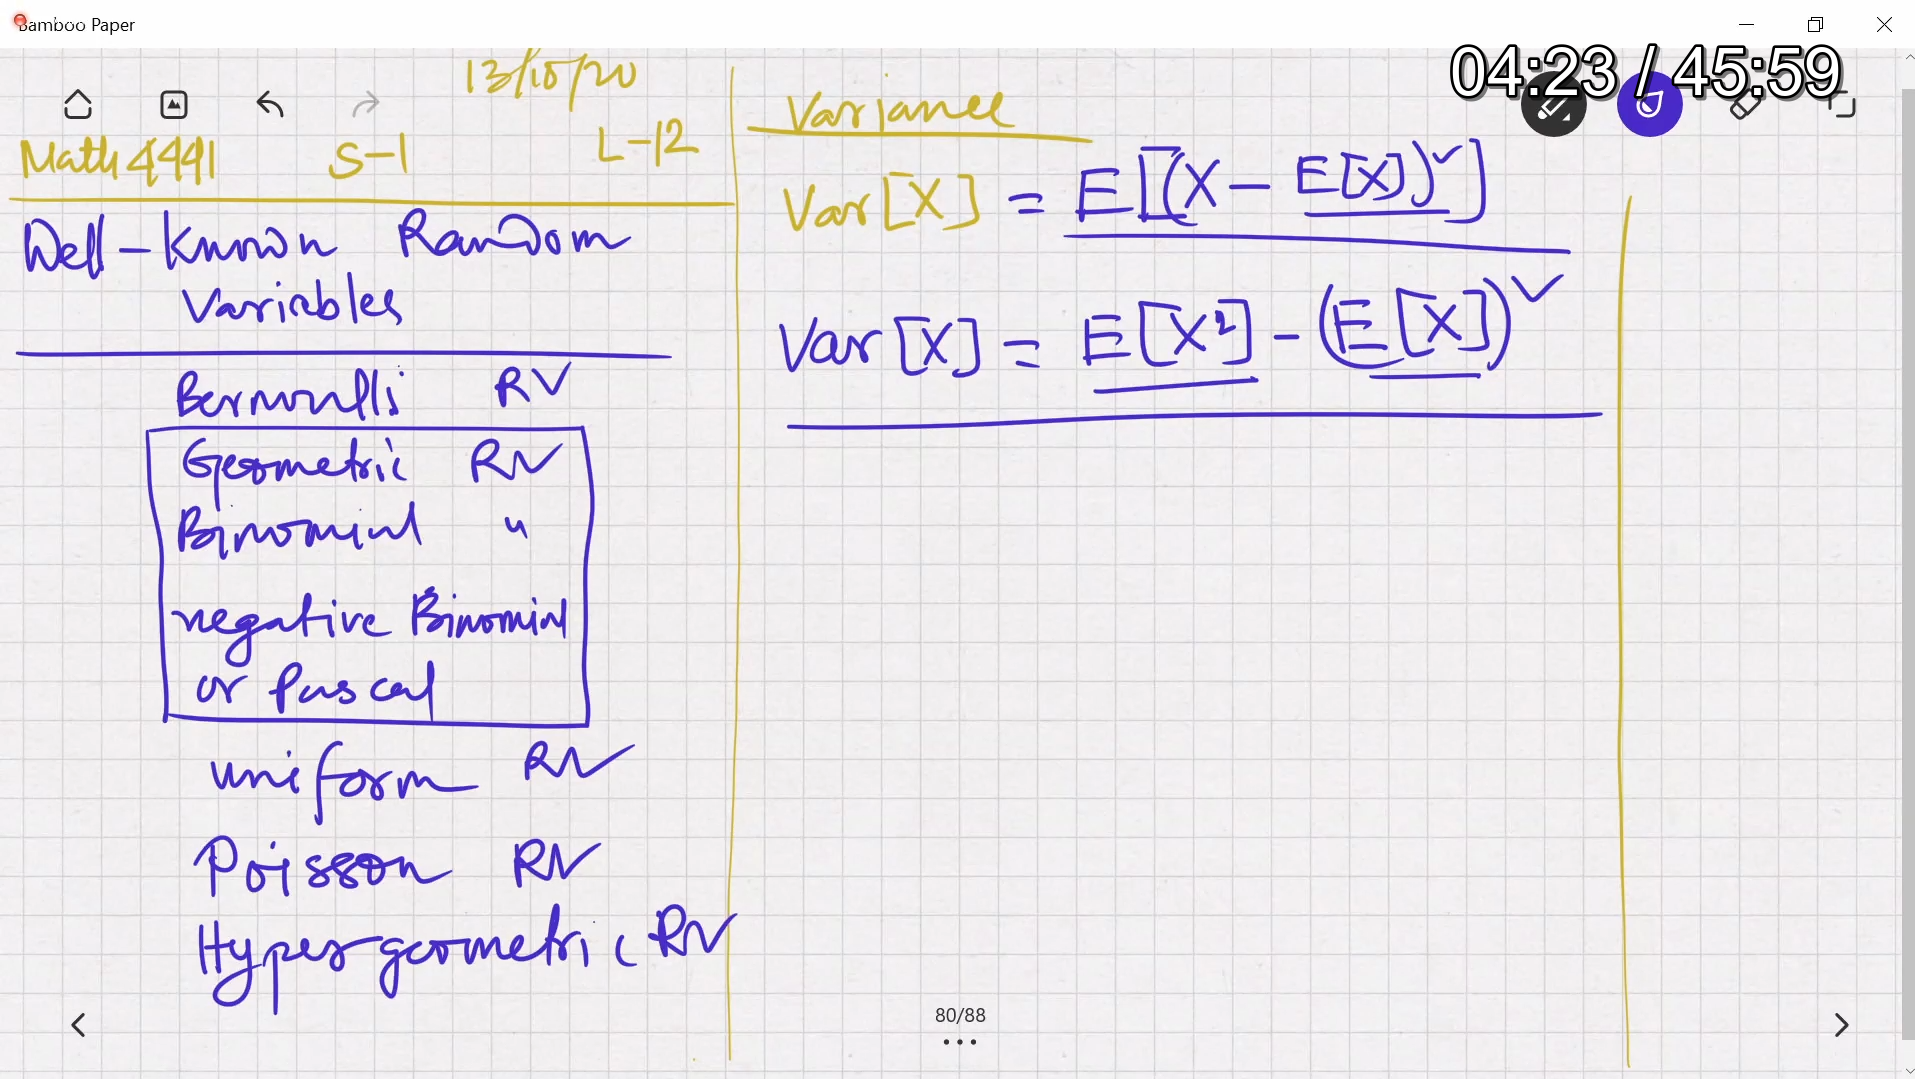 Bamboo Paper
04:23 / 45:59
13/10/20
Math 4441 S-1 L-12
Well-Known Random
Variables
Bernoulli RV
Geometric RV
Binomial "
negative Binomial
or Pascal
uniform RV
Poisson RV
Hypergeometric RV
Variance
Var[X] = E[(X - E[X])²]
Var[X] = E[X²] - (E[X])²
80/88